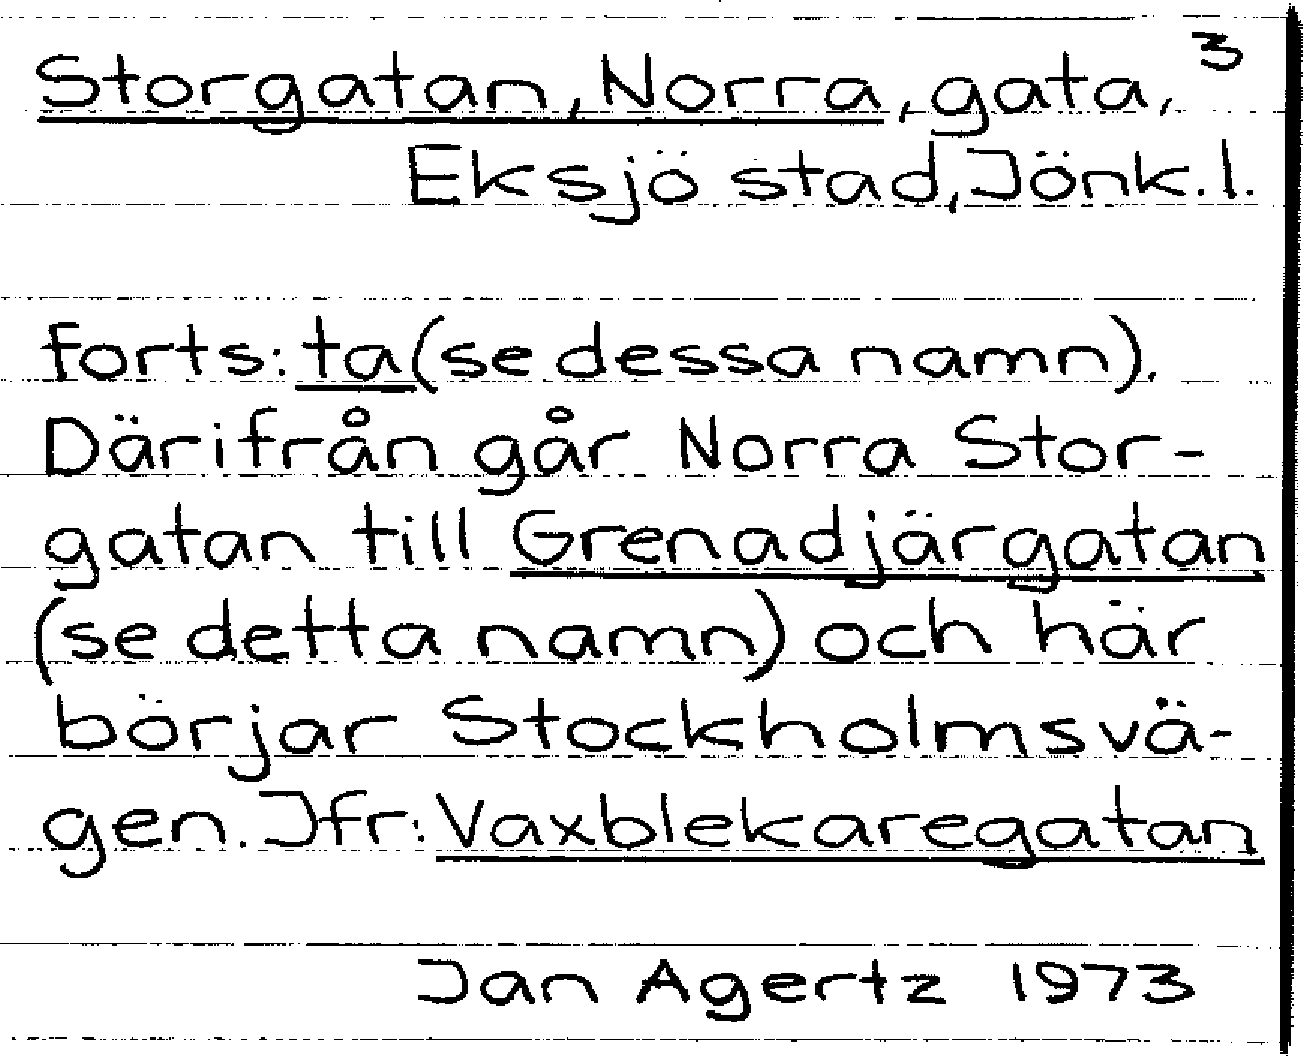 3
Storgatan, Norra, gata,
Eksjö stad, Jönk.l.
forts: ta (se dessa namn).
Därifrån går Norra Stor-
gatan till Grenadjärgatan
(se detta namn) och här
börjar Stockholmsvä-
gen. Jfr: Vaxblekaregatan
Jan Agertz 1973